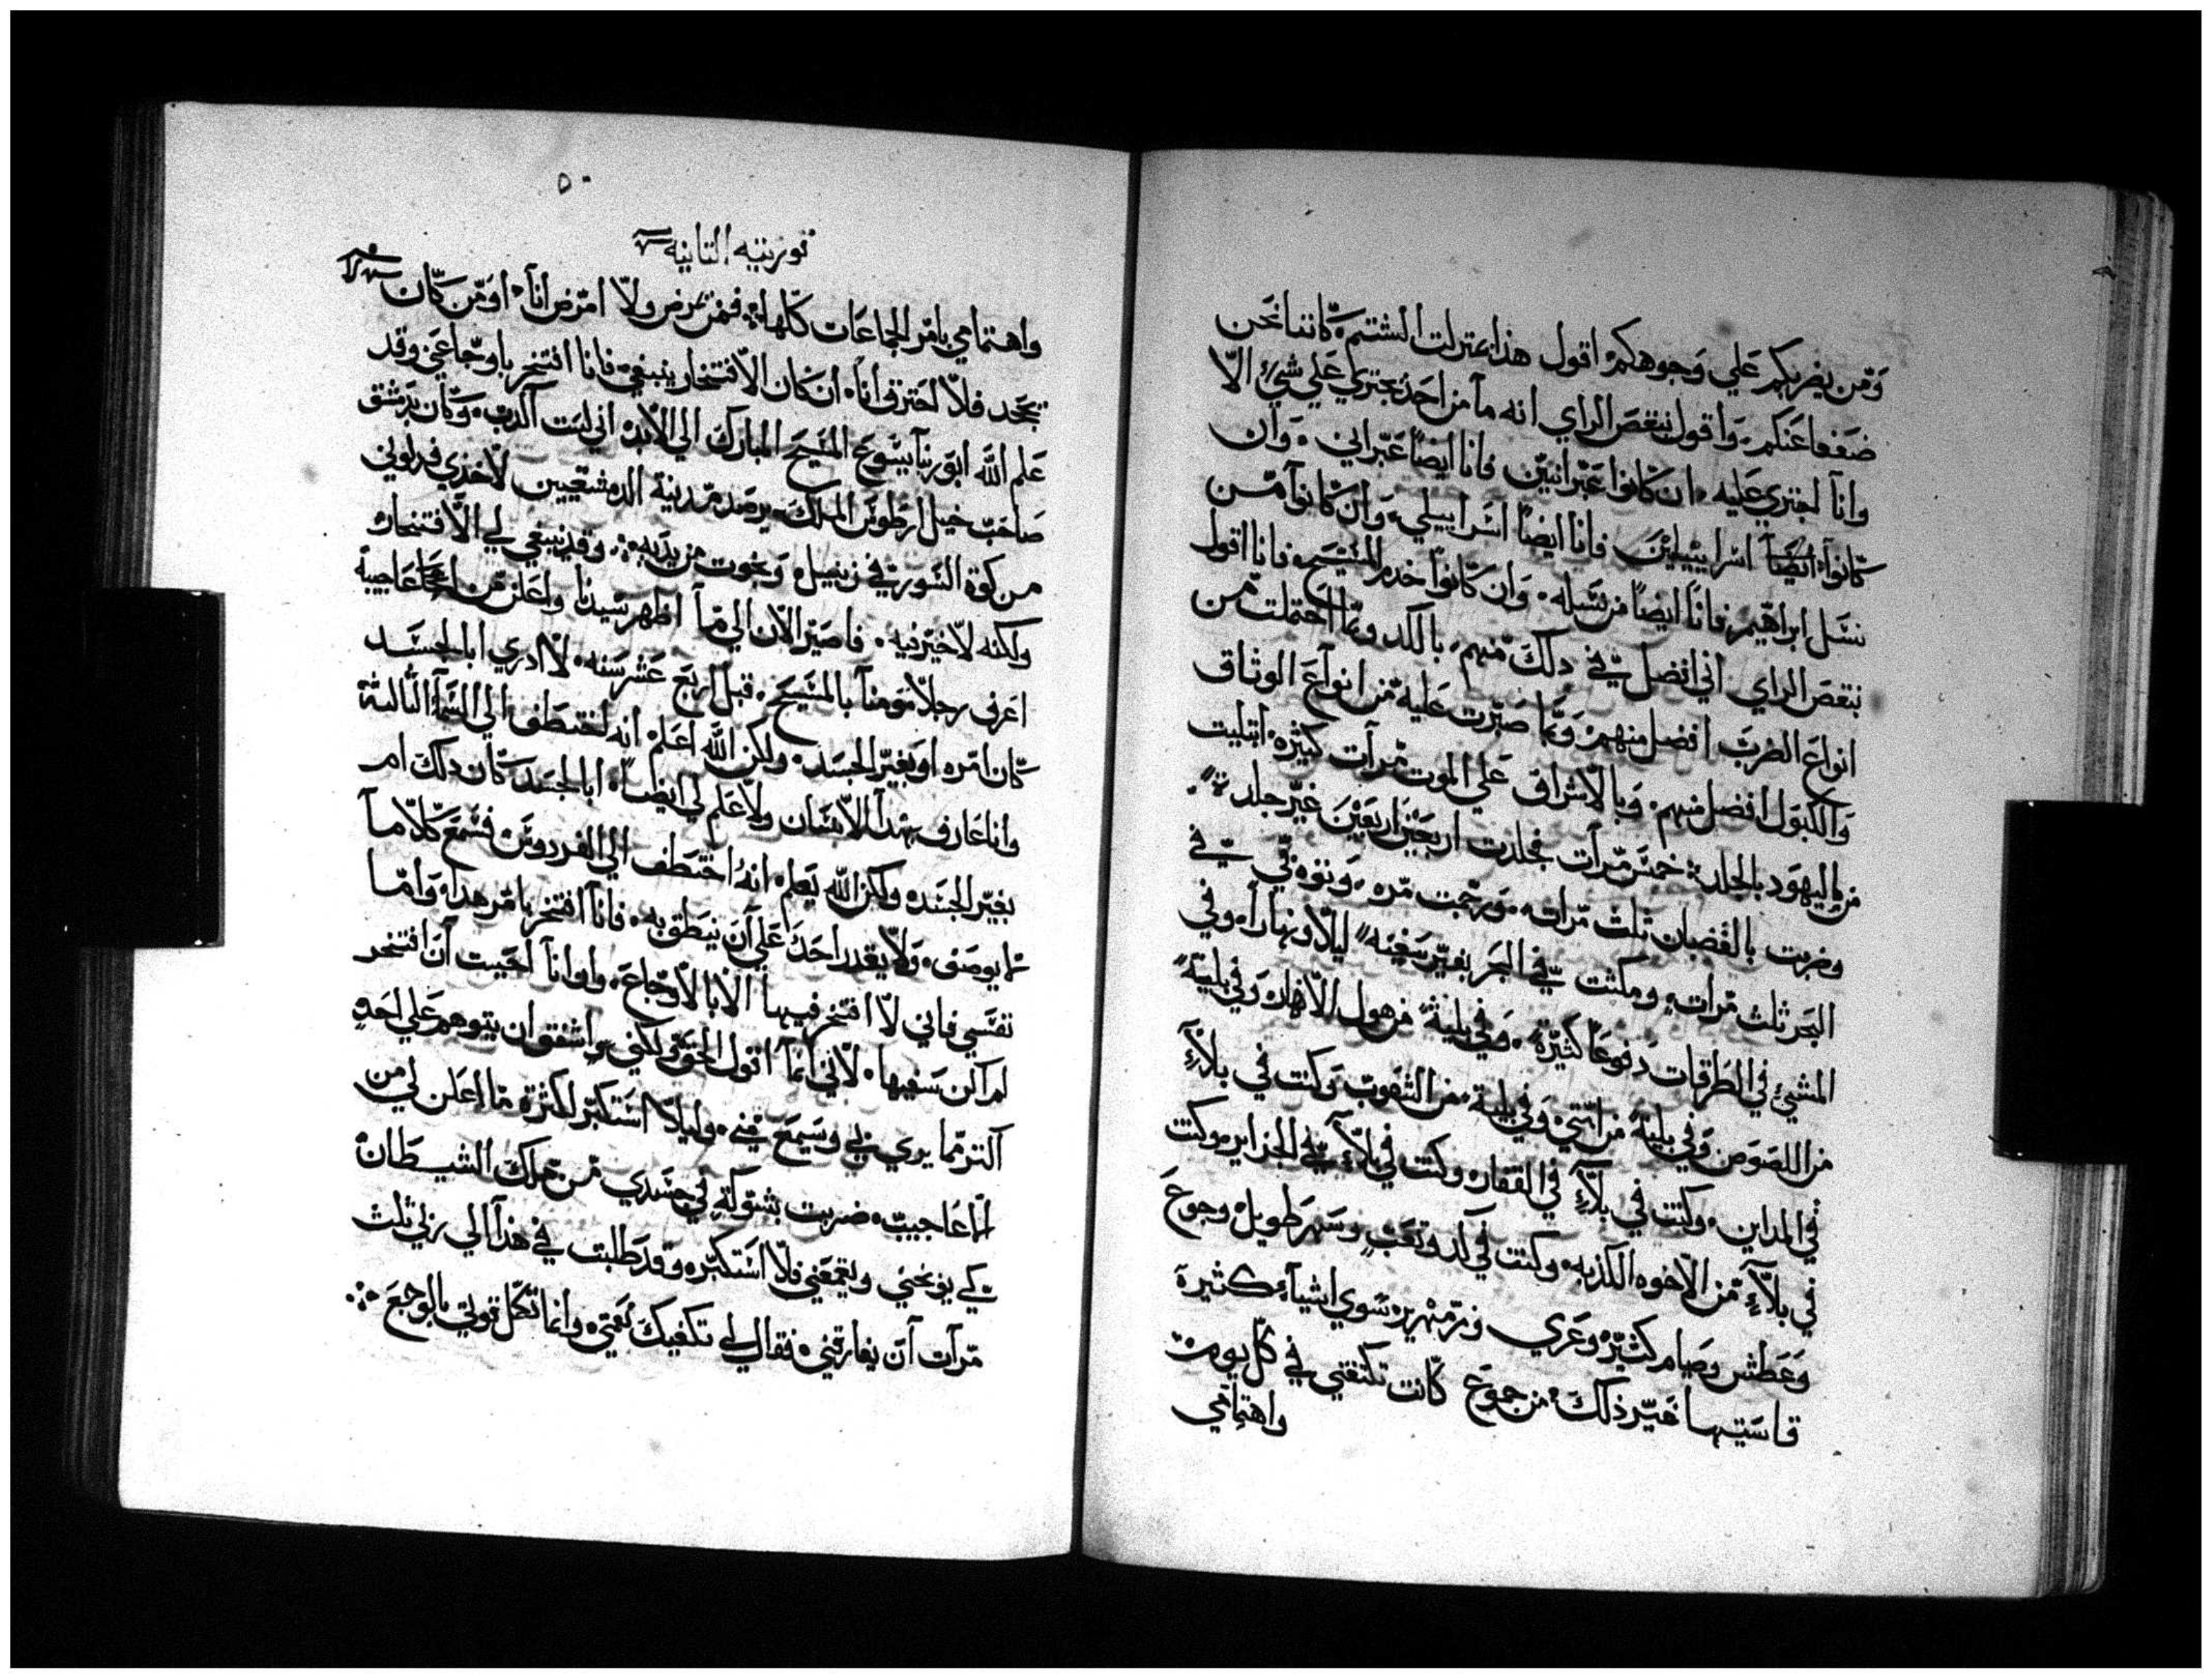 ومن يضربكم علي وجوهكم اقول هذا بمنزلت الشتم كاننا نحن
ضعفا عندكم واقول بنقص الراي انه ما من احد يجتري علي شيء الا
وانا اجتري عليه ان كانوا عبرانيين فانا ايضاً عبراني وان
كانوا ايضاً اسراييليين فانا ايضاً اسراييلي وان كانوا من
نسل ابراهيم فانا ايضاً من نسله وان كانوا خدم المسيح فانا اقول
بنقص الراي اني افضل في ذلك منهم بالكد ومما احتملت من
انواع الضرب افضل منهم ومما صبرت عليه من انواع الوثاق
والكبول افضل منهم وبالاشراف علي الموت مرات كثيره ابتليت
من اليهود بالجلد خمس مرات فجلدت اربعين اربعين غير جلده
وضربت بالقضبان ثلث مرات ورجمت مره وتوه بي في
البحر ثلث مرات ومكثت في البحر بغير سفينه ليلا ونهارا وفي
المشي في الطرقات دفوعا كثيرة وفي بلية من هول الانهار وفي بلية
من اللصوص وفي بلية من امتي وفي بلية من الشعوب وكنت في بلاء
في المداين وكنت في بلاء في القفار وكنت في بلاء في الجزاير وكنت
في بلاء من الاخوه الكذبه وكنت في كد وتعب وسهر طويل وجوع
وعطش وصيام كثير وعري وزمهرير سوي اشياء كثيرة
قاسيتها غير ذلك من جموع كانت تكتفني في كل يوم
واهتمامي
٥٠
قورنتيه التانيه
واهتمامي بامر الجماعات كلها فمن يمرض ولا امرض انا او من كان
يجحد فلا احترق انا ان كان الافتخار ينبغي فانا افتخر باوجاعي وقد
علم الله ابو ربنا يسوع المسيح المبارك الي الابد اني ليت اكدب وكان بدمشق
صاحب خيل ارطوس الملك يرصد مدينة الدمشقيين لاخذي فدلوني
من كوة السور في زنبيل ونجوت من يديه وقد ينبغي لي الافتخار
ولكنه لا خير فيه فاصير الان الي ما اظهر سيدنا واعلن من اعاجيبه
اعرف رجلا مومنا بالمسيح قبل اربع عشر سنه لا ادري ابالجسد
كان امره او بغير الجسد ولكن الله اعلم انه اختطف الي السما الثالثة
وانا عارف بهدا الانسان ولا علم لي ايضاً ابالجسد كان دلك ام
بغير الجسد ولكن الله يعلم انه اختطف الي الفردوس فسمع كلاما
لا يوصف ولا يقدر احد علي ان ينطق به فانا افتخر بامر هدا واما
نفسي فاني لا افتخر فيها الا بالاوجاع ولو انا احببت ان افتخر
لم اكن سفيها لاني انما اقول الحق ولكني اشفق ان يتوهم علي احد
اكتر مما يري بي وسمع مني وليلا استكبر لكثرة ما اعلن لي من
الاعاجيب ضربت بشوكة في جسدي من ملك الشيطان
كي يوبخني ويقمعني فلا استكبر وقد طلبت في هذا الي ربي ثلث
مرات ان يفارقني فقال لي تكفيك نعمتي وانما تكمل قوتي بالوجع